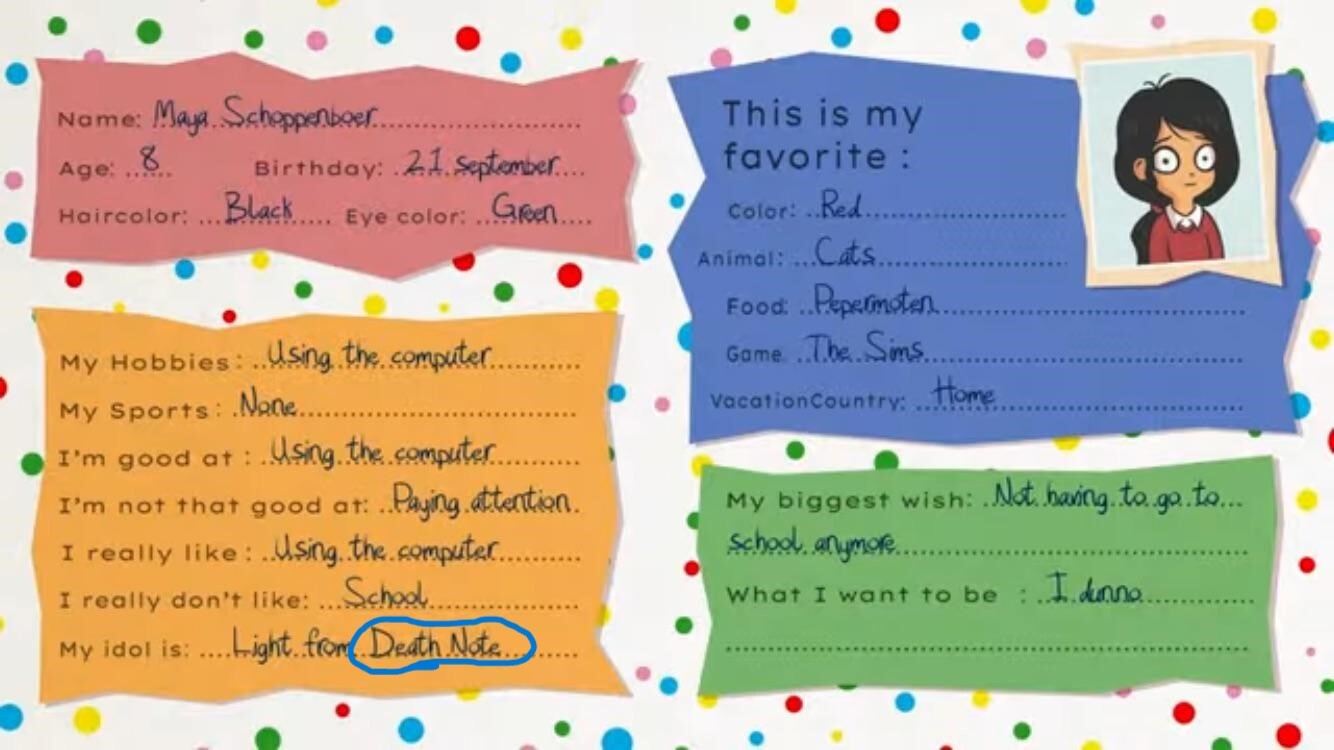 Name: Maya Schoppenboer
Age: 8 Birthday: 21 september
Haircolor: Black Eye color: Green
My Hobbies: Using the computer
My Sports: None
I'm good at: Using the computer
I'm not that good at: Paying attention
I really like: Using the computer
I really don't like: School
My idol is: Light from Death Note
This is my
favorite :
Color: Red
Animal: Cats
Food: Pepermoten
Game The Sims
VacationCountry: Home
My biggest wish: Not having to go to
school anymore
What I want to be : I dunno